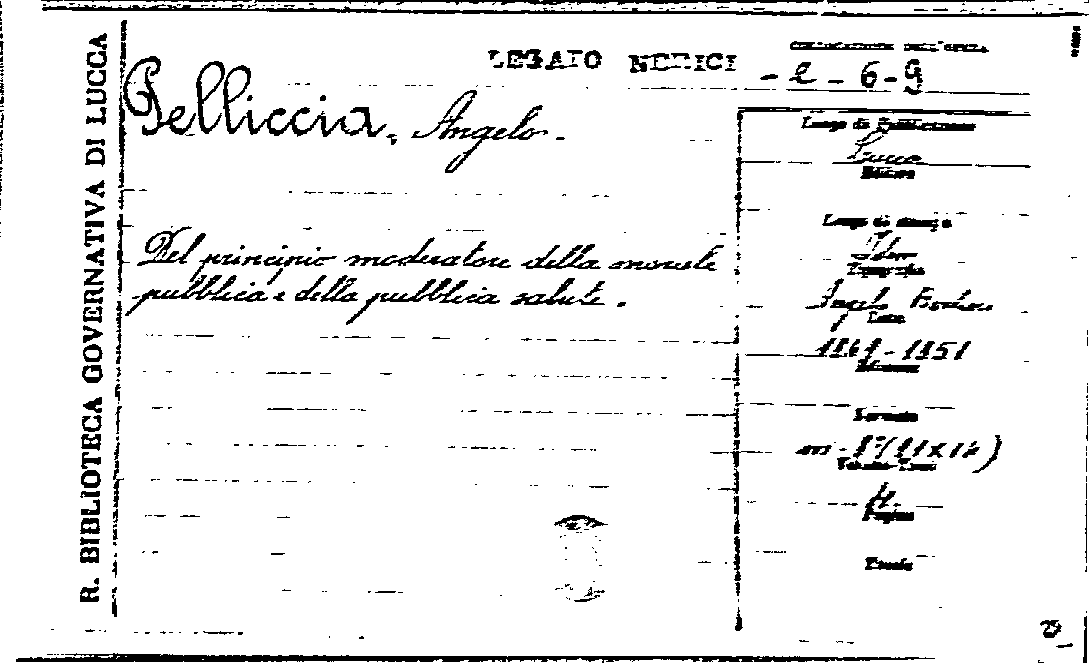 R. BIBLIOTECA GOVERNATIVA DI LUCCA
LEGATO NERICI
COLLOCAZIONE DELL'OPERA
- 2 - 6 - 9
Pelliccia, Angelo.
Del principio moderatore della morale
pubblica e della pubblica salute.
Luogo di Pubblicazione
Lucca
Editore
Luogo di stampa
Idem
Tipografia
Angelo
Data
Edizione
Formato
Volume-Tomo
Pagine
Tavole